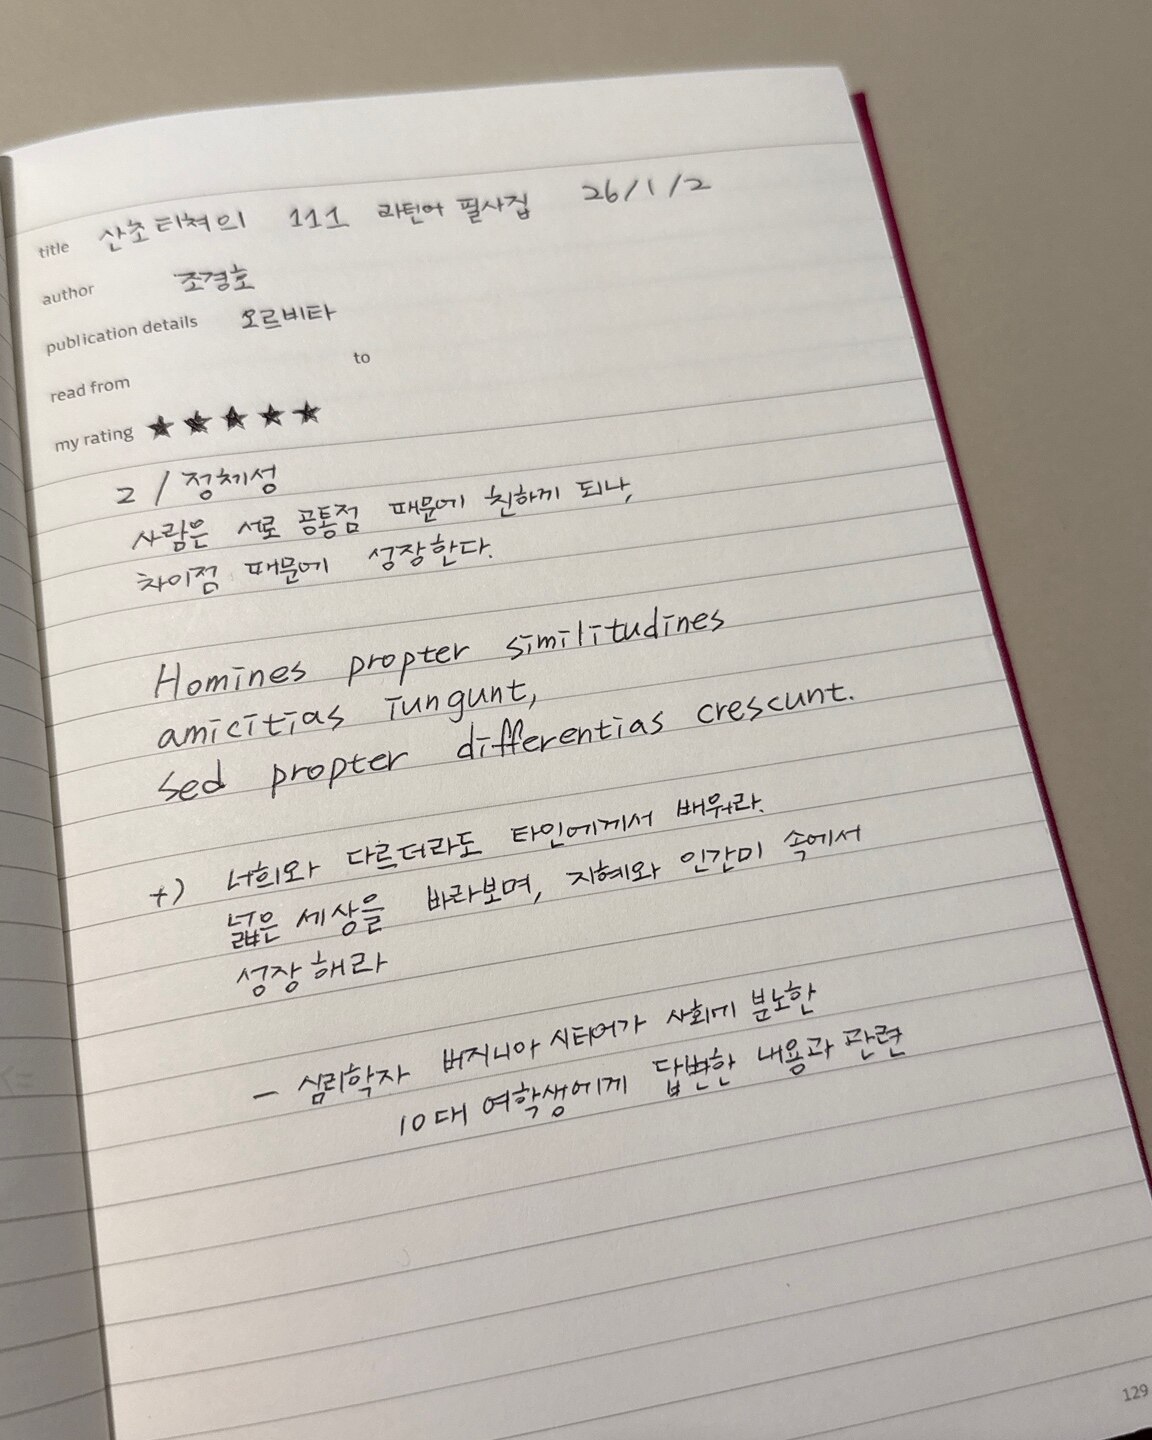 title 산초티쳐의 111 라틴어 필사집 26/1/2
author 조경호
publication details 오르비타
read from to
my rating ★★★★★
2 / 정체성
사람은 서로 공통점 때문에 친하게 되나,
차이점 때문에 성장한다.
Homines propter similitudines
amicitias iungunt,
sed propter differentias crescunt.
+) 너희와 다르더라도 타인에게서 배워라.
넓은 세상을 바라보며, 지혜와 인간미 속에서
성장해라
- 심리학자 버지니아 시티어가 사회에 분노한
10대 여학생에게 답변한 내용과 관련
129